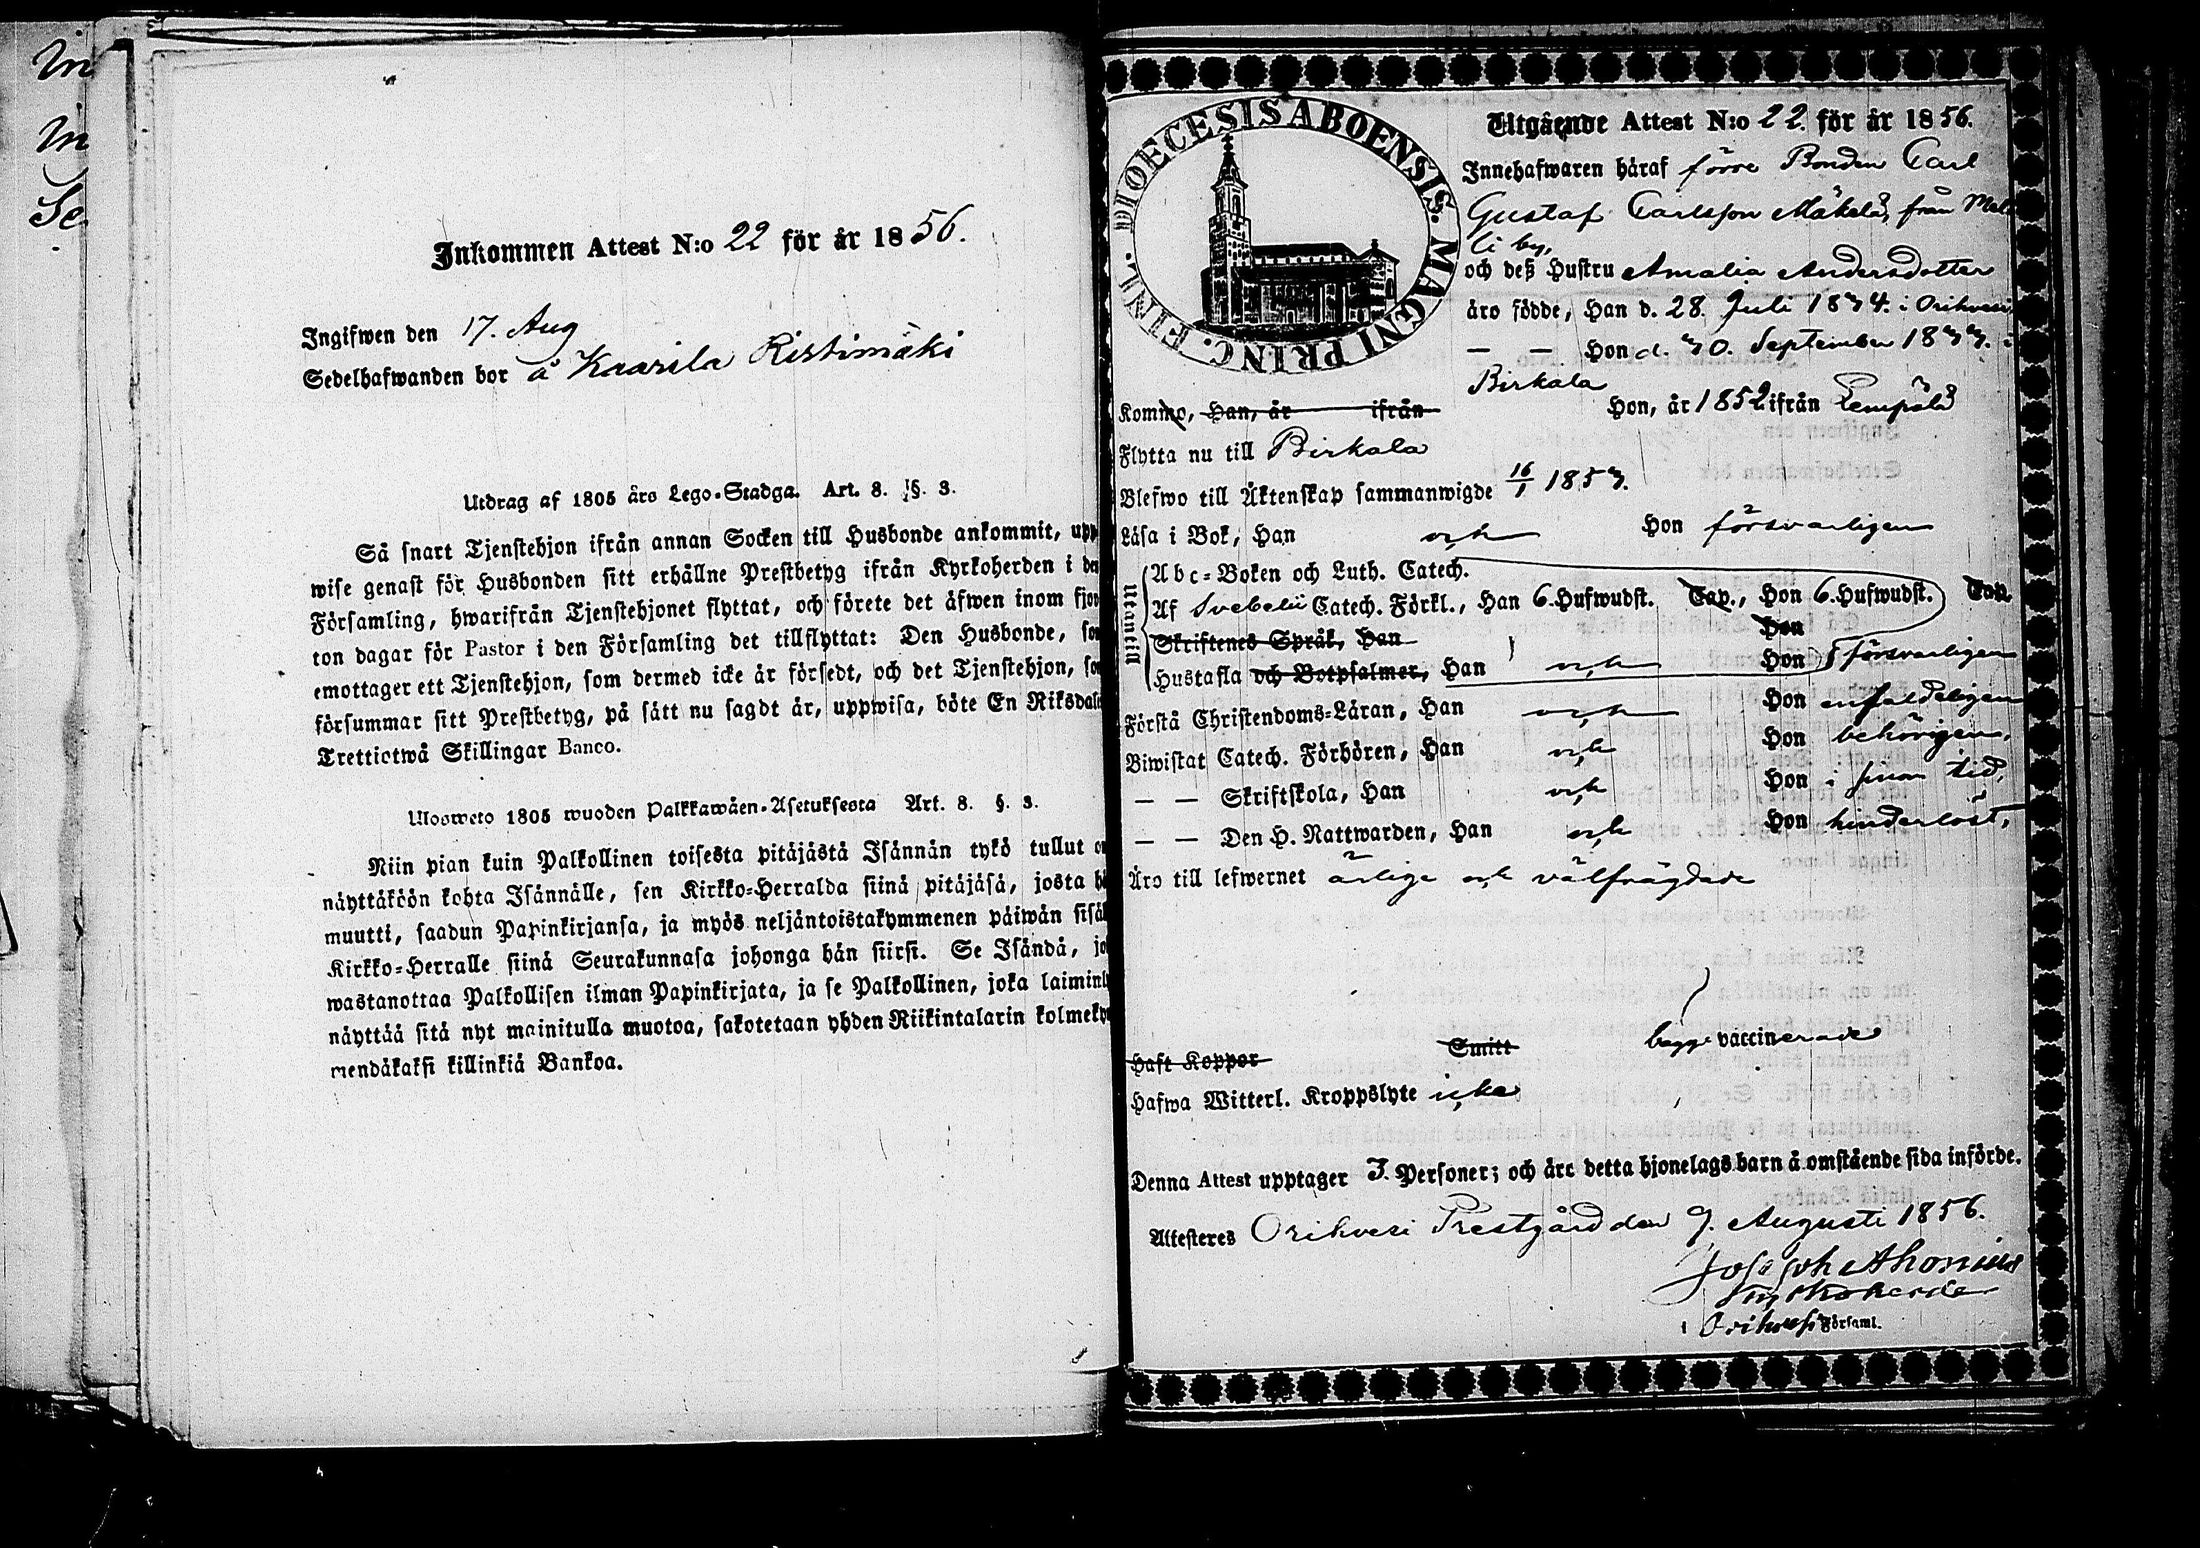 Inkommen Attest N:o 22 för år 1856.
Ingifwen den 17. Aug
Sedelhafwanden bor å Kaarila Ristimäki
Utdrag af 1805 års Lego-Stadga. Art. 8. §. 3.
Så snart Tjenstehjon ifrån annan Socken till Husbonde ankommit, upp-
wise genast för Husbonden sitt erhållne Prestbetyg ifrån Kyrkoherden i den
Församling, hwarifrån Tjenstehjonet flyttat, och förete det äfwen inom fjor-
ton dagar för Pastor i den Församling det tillflyttat: Den Husbonde, som
emottager ett Tjenstehjon, som dermed icke är försedt, och det Tjenstehjon, som
försummar sitt Prestbetyg, på sätt nu sagdt är, uppwisa, böte En Riksdaler
Trettiotwå Skillingar Banco.
Ulosweto 1805 wuoden Palkkawäen-Asetuksesta Art. 8. §. 3.
Niin pian kuin Palkollinen toisesta pitäjästä Isännän tykö tullut on
näyttäköön kohta Isännälle, sen Kirkko-Herralda siinä pitäjäsä, josta hän
muutti, saadun Papinkirjansa, ja myös neljäntoistakymmenen päiwän sisäl
Kirkko-Herralle siinä Seurakunnasa johonga hän siirsi. Se Isändä, jo
wastanottaa Palkollisen ilman Papinkirjata, ja se Palkollinen, joka laiminly
näyttää sitä nyt mainitulla muotoa, sakotetaan yhden Riikintalarin kolmeky
mendäkaksi killinkiä Bankoa.
DIOECESIS ABOENSIS. MAGNI PRINC. FINL.
Utgående Attest N:o 22. för år 1856.
Innehafwaren häraf förre Bonden Carl
Gustaf Carlsson Mäkelä, från
li by,
och deß Hustru Amalia Andersdotter
äro födde, Han d. 28. Juli 1834. i Orihvesi
— — Hon d. 30. September 1833. i
Birkala
Komne, Han, år ifrån Hon, år 1852 ifrån Lempälä
Flytta nu till Birkala
Blefwo till Äktenskap sammanwigde 16/1 1853.
Läsa i Bok, Han och Hon försvarligen
Utantill
Abc-Boken och Luth. Catech.
Af Svebelii Catech. Förkl., Han 6. Hufwudst. Cap., Hon 6. Hufwudst. Cap.
Skriftenes Språk, Han Hon
Hustafla och Botpsalmer, Han och Hon försvarligen
Förstå Christendoms-Läran, Han och Hon enfaldeligen
Biwistat Catech. Förhören, Han och Hon behörigen,
— — Skriftskola, Han och Hon i sinom tid,
— — Den H. Nattwarden, Han och Hon hinderlöst,
Äro till lefwernet ärlige och välfrägdade
Haft Koppor Smitt bägge vaccinerade
Hafwa Witterl. Kroppslyte icke
Denna Attest upptager 3. Personer; och äro detta hjonelags barn å omstående sida införde.
Attesteres Orihvesi Prestgård den 9. Augusti 1856.
Joseph Ahonius
Kyrkoherde
i Orihvesi Församl.